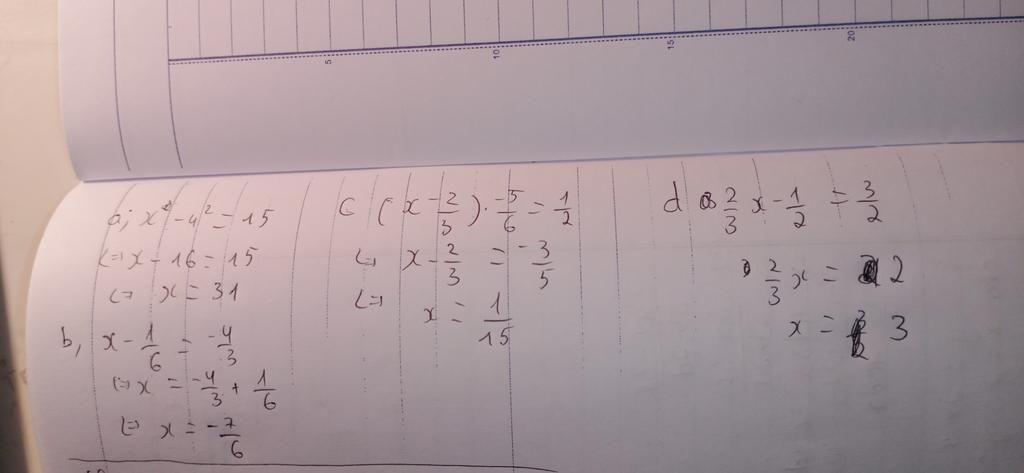 5 10 15 20
a; x² - 4² = 15
⇔ x - 16 = 15
⇔ x = 31
b, x - 1/6 = -4/3
⇔ x = -4/3 + 1/6
⇔ x = -7/6
c (x - 2/3) . -5/6 = 1/2
⇔ x - 2/3 = -3/5
⇔ x = 1/15
d 2/3 x - 1/2 = 3/2
2/3 x = 2
x = 3